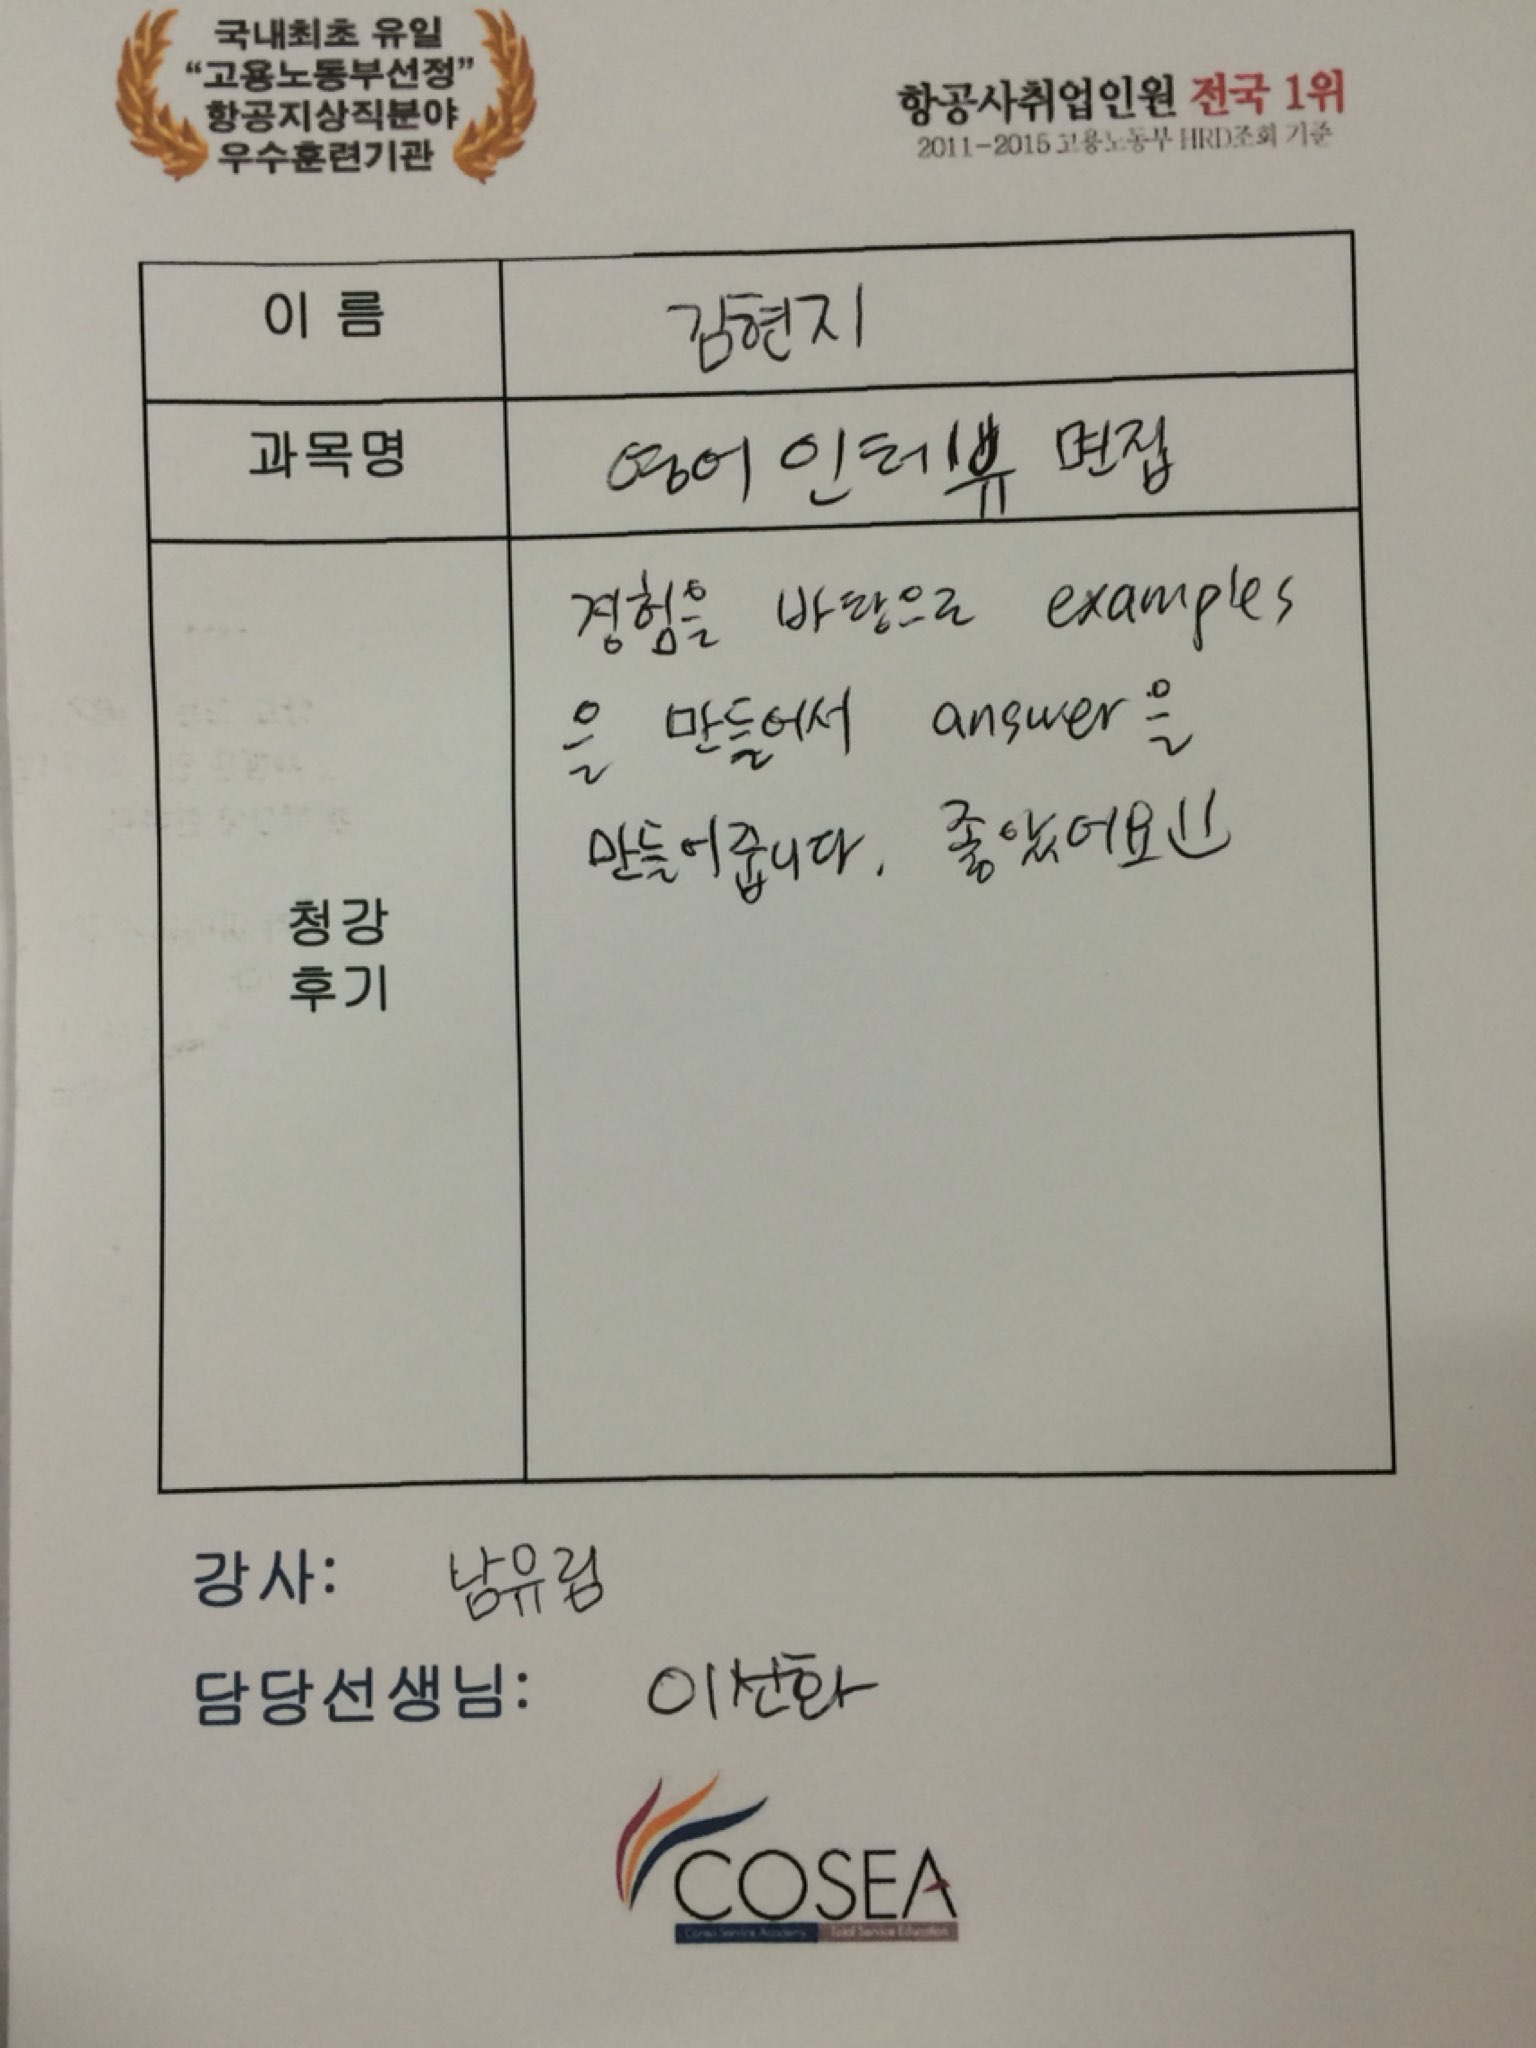 국내최초 유일
“고용노동부선정”
항공지상직분야
우수훈련기관
항공사취업인원 전국 1위
2011-2015 고용노동부 HRD조회 기준
이 름
김현지
과목명
영어 인터뷰 면접
청강
후기
경험을 바탕으로 examples
을 만들어서 answer을
만들어줍니다. 좋았어요!!
강사: 남유림
담당선생님: 이선화
COSEA
Corea Service Academy Total Service Education